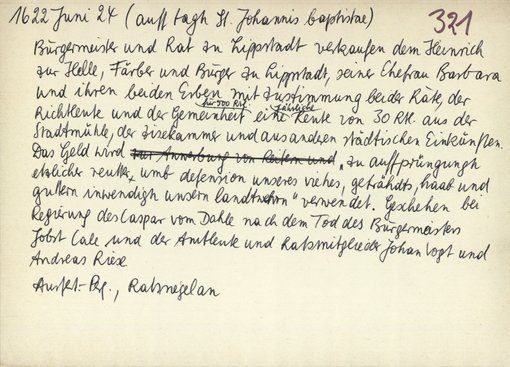 1622 Juni 24 (auff tagh St. Johannis baptistae) 321
Bürgermeister und Rat zu Lippstadt verkaufen dem Heinrich
zur Helle, Färber und Bürger zu Lippstadt, seiner Ehefrau Barbara
und ihren beiden Erben mit Zustimmung beider Räte, der
für 500 Rtl. jährliche
Richtleute und der Gemeinheit eine Rente von 30 Rtl. aus der
Stadtmühle, der Zisekammer und aus anderen städtischen Einkünften.
Das Geld wird zur Anwerbung von Reitern und "zu auffpringungh
etzlicher reutter umb defension unseres viehes, geträhdts, haab und
guttern inwendigh unsern landtwehren" verwendet. Geschehen bei
Regierung des Caspar vom Dahle nach dem Tod des Bürgermeisters
Jobst Cale und der Amtleute und Ratsmitglieder Johan Vogt und
Andreas Rixe
Ausfert.-Pg., Ratssiegel an